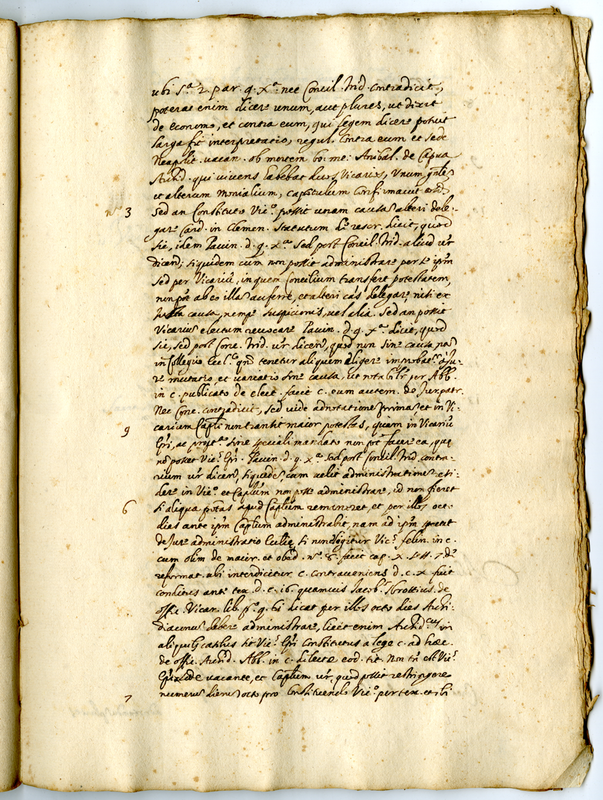 ubi s.ª 2. par. q. X.ª nec Concil. Trid. contradicit,
poterat enim dicere unum, aut plures, ut dixit
de Economo, et contra eum, qui legem dicere potuit
larga fit interpretatio, regul. contra eum et sede
Neaplit. vacan. ob mortem bo: me: Anibal. de Capua
Archid. qui vivens habebat duos Vicarios, Unum gñle
et alterum Monialium, capitulum confirmavit
n.º 3 Sed an Constitutus Vic.s possit unam causã alteri dele-
gare Card. in Clemen. Statutum de rescr. dicit, quod
sic, idem Pavin. d. q. X.ª sed post Concil. Trid. aliud vr̃
dicend; siquidem cum non possit administrare per se ipm̃
sed per Vicariũ, in quem Concilium transfert potestatem,
non põt ab eo illã auferre, et alteri cãs delegare nisi ex
justa causa, nempe suspicionis, vel alia. Sed an possit
Vicariũ electum revocare Pavin. d. q. X.ª dicit, quod
sic, sed post Conc. Trid. vr̃ dicend, quod non sine causa
in Collegio tenetur aliquem eligere
mutatio, et variatio sine causa, ut notabilr̃ per Abb.
in c. publicato de elect. facit c. cum autem. de Jur. patr.
Nec Conc. contradicit, sed vide adnotationes primas et in Vi-
9 cariam Capli non transit maior potestas, quam in Vicariũ
Epi, ac sine speciali mandato non põt facere ea, quę
nõ posset Vic.s Epi. Pavin. d. q. X.ª sed post Concil. Trid. contra-
rium vr̃ dicend, siquidem cum velit administrationẽ
dere in Vic.º et Caplum non posse administrare, id non fieret
6 si aliqua potestas apud Caplum remaneret, et per illos oct.
dies ante ipm̃ Caplum administrabit, nam ad ipm̃ spectat
de Jure administratio Ecclię si non eligitur Vic.s felin. in c.
cum olim de maior. et obed. n.º 6. facit cap. X.
reformat. ubi interdicitur c. contraveniens d. c. X fuit
conditus ante tex. d. c. 16. quamvis Jacob. Sbrottius. de
offi. Vicar. lib. p.º q. 61 dicat per illos octo dies Archi-
diaconus debere administrare, licet enim Archid.cus in
aliquibus casibus sit Vic.s Epi Constitutus a lege c. ad hæc.
de offi. Archid. Abb. in c. dilecto eod. tit. Non tñ est Vic.s
sede vacante, et Caplum vr̃. quod possit restringere
7 numerus dierũ octo pro Constituendo Vic.º per tex. et ibi